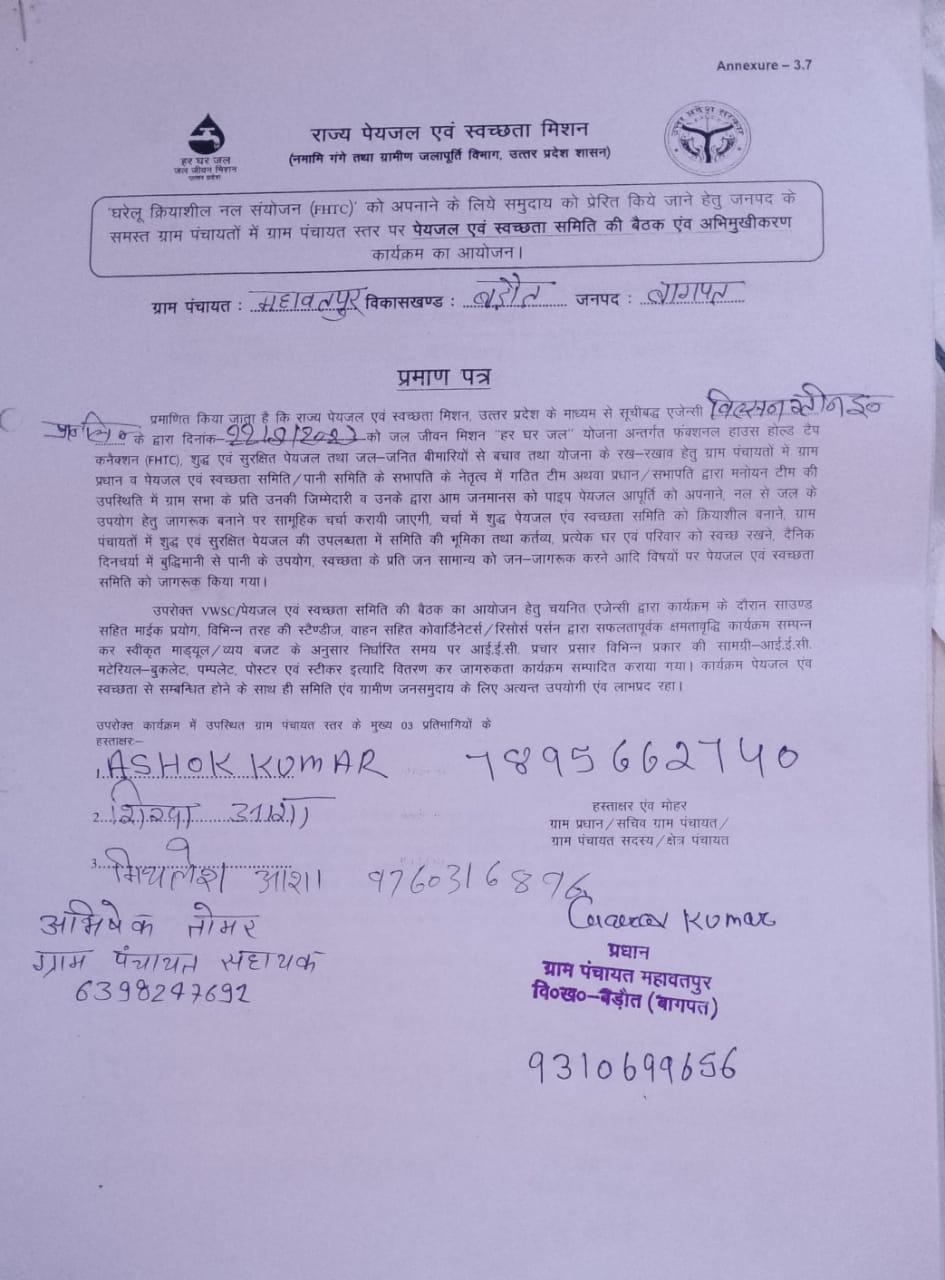 Annexure – 3.7
हर घर जल
जल जीवन मिशन
उत्तर प्रदेश
राज्य पेयजल एवं स्वच्छता मिशन
(नमामि गंगे तथा ग्रामीण जलापूर्ति विभाग, उत्तर प्रदेश शासन)
उत्तर प्रदेश सरकार
'घरेलू क्रियाशील नल संयोजन (FHTC)' को अपनाने के लिये समुदाय को प्रेरित किये जाने हेतु जनपद के
समस्त ग्राम पंचायतों में ग्राम पंचायत स्तर पर पेयजल एवं स्वच्छता समिति की बैठक एंव अभिमुखीकरण
कार्यक्रम का आयोजन।
ग्राम पंचायत : महावतपुर विकासखण्ड : बड़ौत जनपद : बागपत
प्रमाण पत्र
प्रमाणित किया जाता है कि राज्य पेयजल एवं स्वच्छता मिशन, उत्तर प्रदेश के माध्यम से सूचीबद्ध एजेन्सी
प्रा० लि० के द्वारा दिनांक- को जल जीवन मिशन "हर घर जल" योजना अन्तर्गत फंक्शनल हाउस होल्ड टेप
कनैक्शन (FHTC), शुद्ध एवं सुरक्षित पेयजल तथा जल-जनित बीमारियों से बचाव तथा योजना के रख-रखाव हेतु ग्राम पंचायतों में ग्राम
प्रधान व पेयजल एवं स्वच्छता समिति/पानी समिति के सभापति के नेतृत्व में गठित टीम अथवा प्रधान/सभापति द्वारा मनोयन टीम की
उपस्थिति में ग्राम सभा के प्रति उनकी जिम्मेदारी व उनके द्वारा आम जनमानस को पाइप पेयजल आपूर्ति को अपनाने, नल से जल के
उपयोग हेतु जागरूक बनाने पर सामूहिक चर्चा करायी जाएगी, चर्चा में शुद्ध पेयजल एंव स्वच्छता समिति को क्रियाशील बनाने, ग्राम
पंचायतों में शुद्ध एवं सुरक्षित पेयजल की उपलब्धता में समिति की भूमिका तथा कर्तव्य, प्रत्येक घर एवं परिवार को स्वच्छ रखने, दैनिक
दिनचर्या में बुद्धिमानी से पानी के उपयोग, स्वच्छता के प्रति जन सामान्य को जन-जागरूक करने आदि विषयों पर पेयजल एवं स्वच्छता
समिति को जागरूक किया गया।
उपरोक्त VWSC/पेयजल एवं स्वच्छता समिति की बैठक का आयोजन हेतु चयनित एजेन्सी द्वारा कार्यक्रम के दौरान साउण्ड
सहित माईक प्रयोग, विभिन्न तरह की स्टैण्डीज, वाहन सहित कोवार्डिनेटर्स/रिसोर्स पर्सन द्वारा सफलतापूर्वक क्षमतावृद्धि कार्यक्रम सम्पन्न
कर स्वीकृत माड्यूल/व्यय बजट के अनुसार निर्धारित समय पर आई.ई.सी. प्रचार प्रसार विभिन्न प्रकार की सामग्री–आई.ई.सी.
मटेरियल–बुकलेट, पम्पलेट, पोस्टर एवं स्टीकर इत्यादि वितरण कर जागरुकता कार्यक्रम सम्पादित कराया गया। कार्यक्रम पेयजल एंव
स्वच्छता से सम्बन्धित होने के साथ ही समिति एंव ग्रामीण जनसमुदाय के लिए अत्यन्त उपयोगी एंव लाभप्रद रहा।
उपरोक्त कार्यक्रम में उपस्थित ग्राम पंचायत स्तर के मुख्य 03 प्रतिभागियों के
हस्ताक्षरः–
1. ASHOK KUMAR 7895662740
2. शिखा आशा
हस्ताक्षर एंव मोहर
ग्राम प्रधान/सचिव ग्राम पंचायत/
ग्राम पंचायत सदस्य/क्षेत्र पंचायत
3. मिथलेश आशा 9760316896
अभिषेक तोमर
ग्राम पंचायत सहायक
6398247692
Kumar
प्रधान
ग्राम पंचायत महावतपुर
वि०ख०–बड़ौत (बागपत)
9310699656